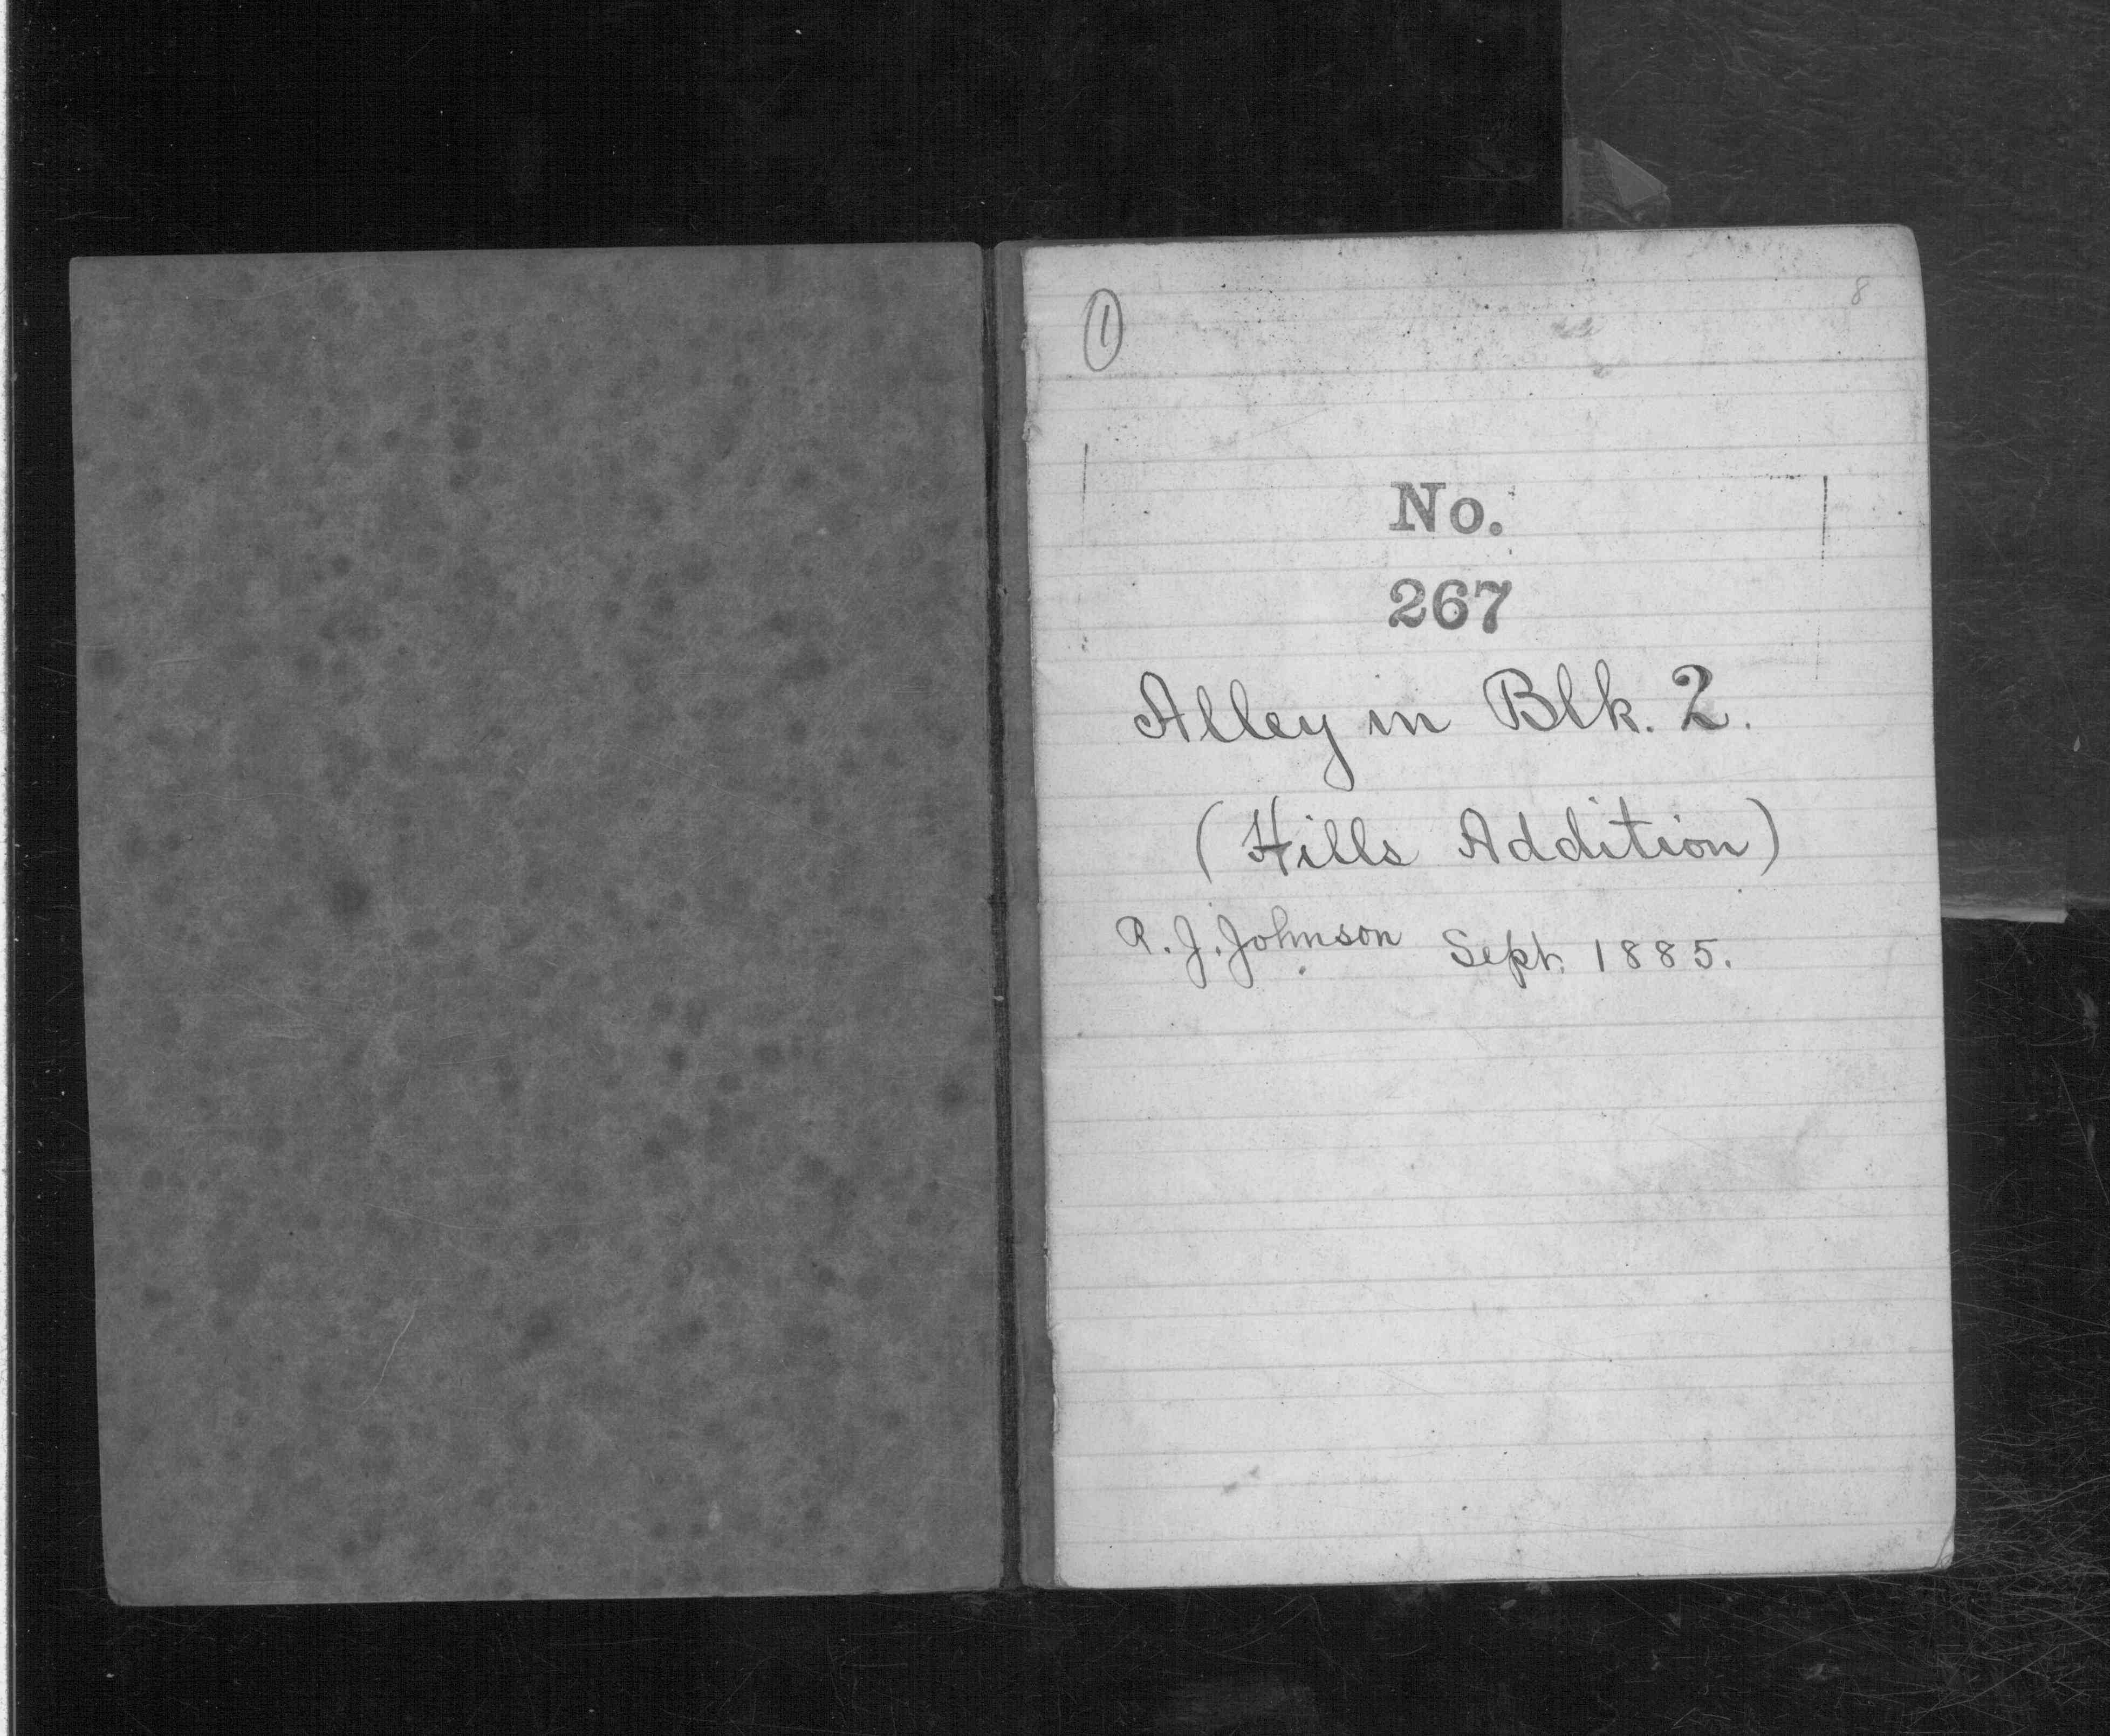 1
8
No.
267
Alley in Blk. 2.
(Hills Addition)
R. J. Johnson Sept. 1885.